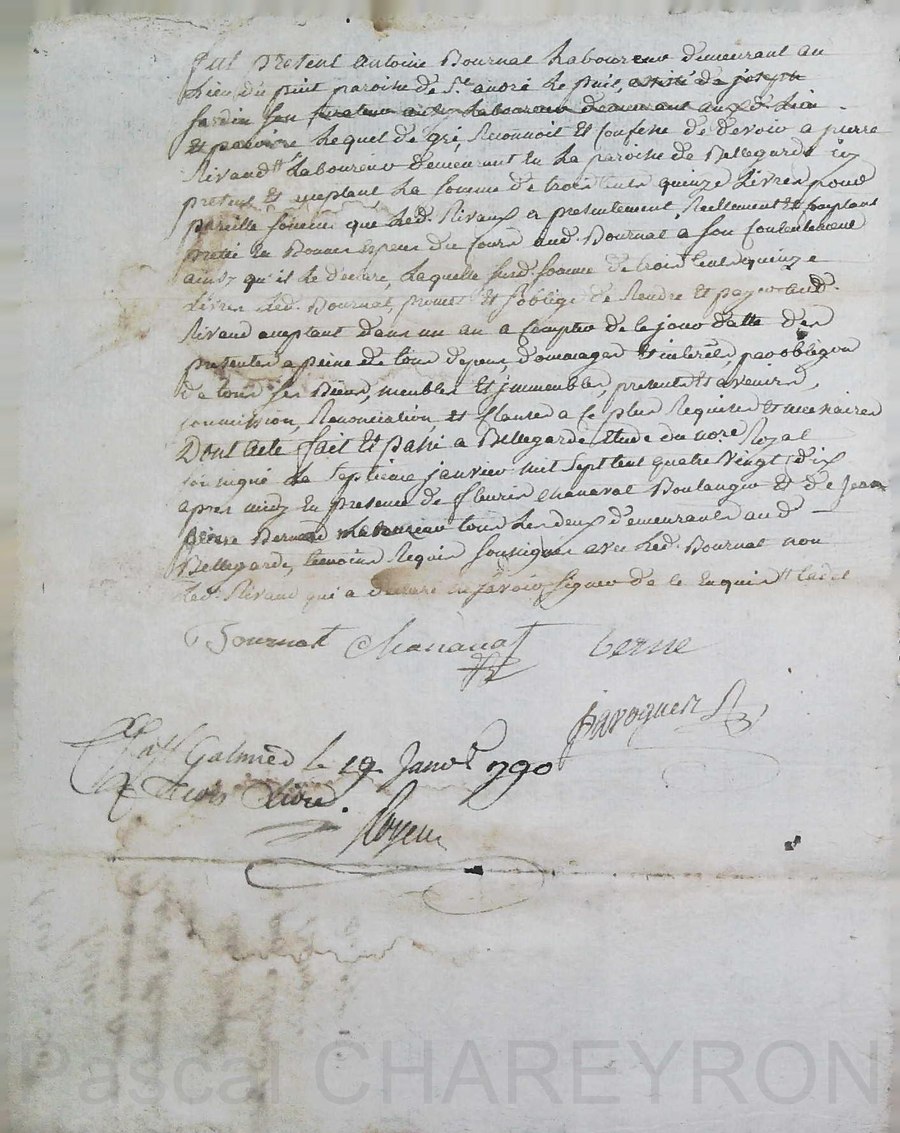 fut present antoine Bournat Laboureur demeurant au
Lieu du puit paroisse de St. andré Le puit, assisté de joseph
jardin son curateur aussy Laboureur demeurant auxd. Lieu
et paroisse Lequel de gré, Reconnoit et Confesse de devoir a pierre
Rivaud Laboureur demeurant En La paroisse de Bellegarde icy
present et acceptant La somme de trois Cents quinze Livres pour
pareille somme que Led. Rivaux a presentement, Reellement et Comptant
preté En Bonnes Especes du Cours aud. Bournat a son Contentement
ainsy qu'il Le declare, Laquelle susd. somme de trois Cent quinze
Livres Led. Bournat, promet et s'oblige de Rendre et payer aud.
Rivaud acceptant Dans un an a Compter de Ce jour datte des
presentes a peine de tous depens, dommages et interêts, par obligon
de tous ses Biens, meubles et immeubles, presents et avenirs,
soumission, Renonciation, et Clauses a Ce plus Requises et necessaires
Dont acte fait et passé a Bellegarde Etude du nore. Royal
soussigné Le septieme janvier mil sept Cent quatre vingt dix
apres midy En presence de fleurie Chanavat Boulanger et de jean
pierre Bernard tous Les deux demeurants aud.
Bellegarde, temoins Requis soussignes avec Led. Bournat non
Led. Rivaud qui a declaré ne savoir signer de Ce Enquis
Bournat Chanavat berne
pavoguer
Galmier le 19 Janv. 1790
R trois livres.
Royer
Pascal CHAREYRON